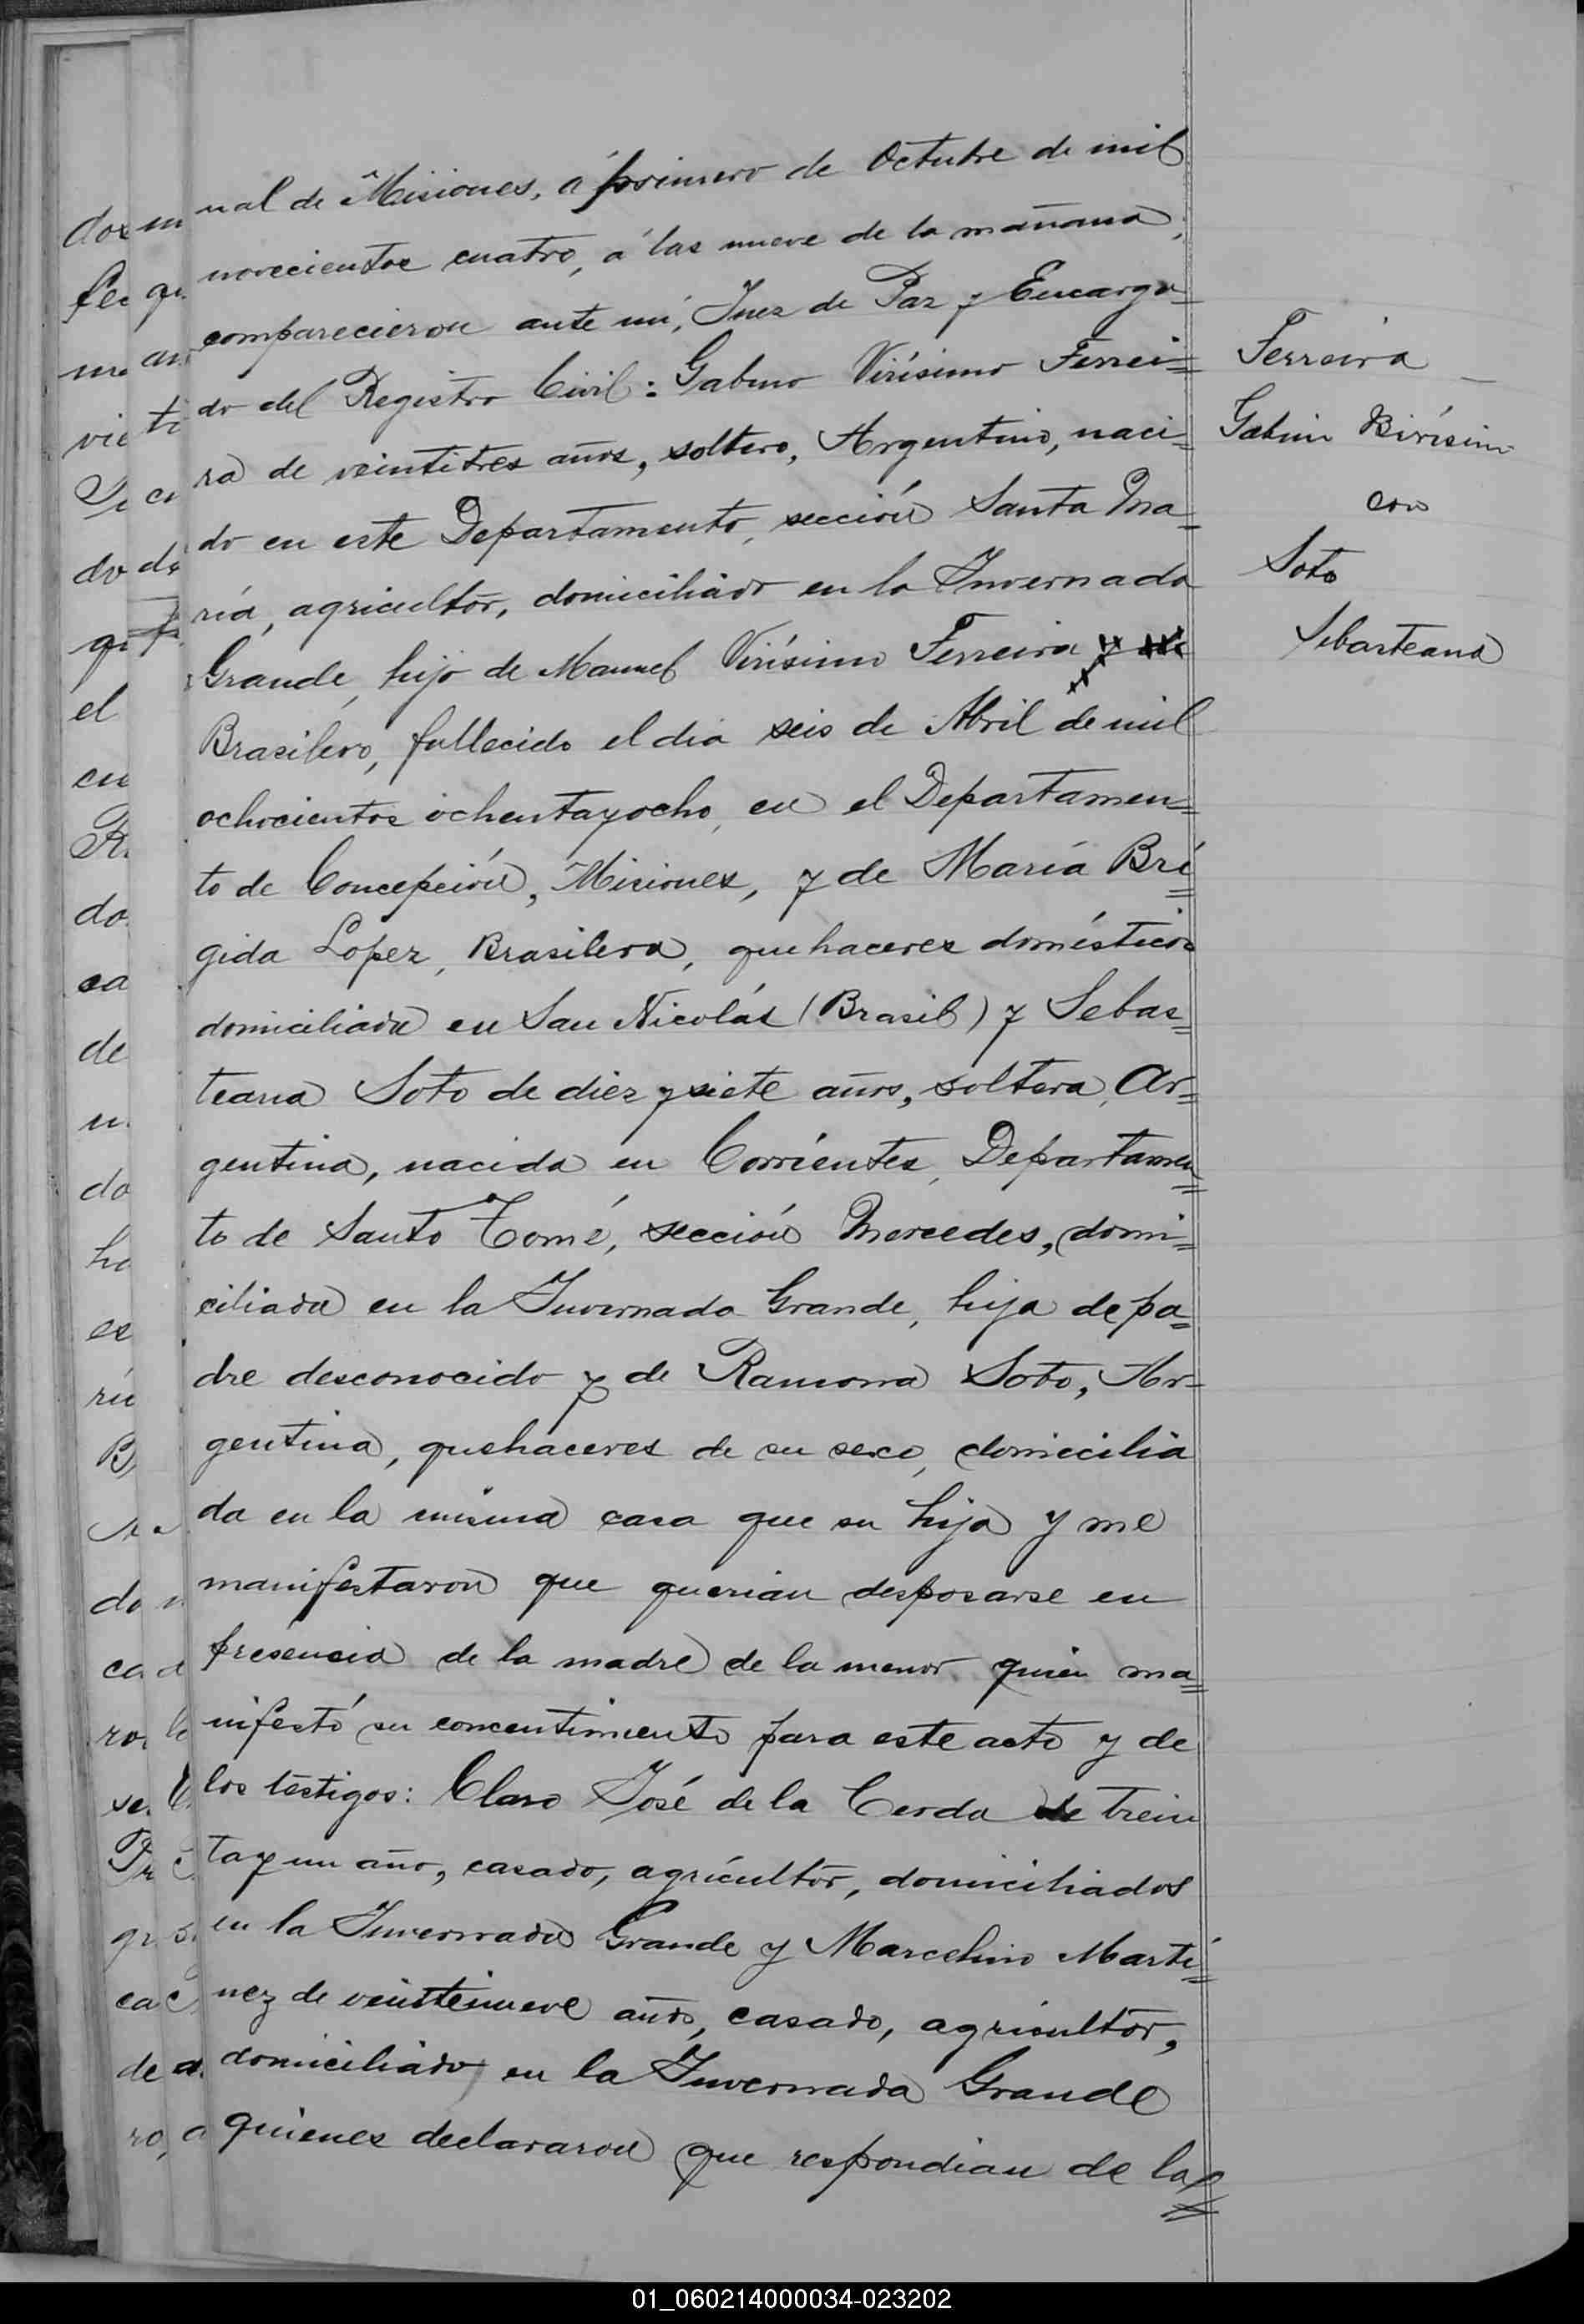 nal de Misiones, á primero de Octubre de mil
novecientos cuatro, á las nueve de la mañana,
comparecieron ante mí, Juez de Paz y Encarga=
do del Registro Civil: Gabino Virísimo Ferrei=
ra de veintitres años, soltero, Argentino, naci=
do en este Departamento, sección Santa Ma=
ría, agricultor, domiciliado en la Invernada
Grande, hijo de Manuel Virísimo Ferreira
Brasilero, fallecido el dia seis de Abril de mil
ochocientos ochentayocho, en el Departamen=
to de Concepción, Misiones, y de María Brí=
gida Lopez, Brasilera, quehaceres domésticos
domiciliada en San Nicolás (Brasil) y Sebas=
teana Soto de diez y siete años, soltera, Ar=
gentina, nacida en Corrientes, Departamen=
to de Santo Tomé, sección Mercedes, domi=
ciliada en la Invernada Grande, hija de pa=
dre desconocido y de Ramona Soto, Ar=
gentina, quehaceres de su sexo, domicilia
da en la misma casa que su hija y me
manifestaron que querian desposarse en
presencia de la madre de la menor quien ma=
nifestó su concentimiento para este acto y de
los testigos: Claro José de la Cerda de trein
tayun año, casado, agricultor, domiciliados
en la Invernada Grande y Marcelino Martí=
nez de veintinueve años, casado, agricultor,
domiciliado en la Invernada Grande
quienes declararon que respondian de la
Ferreira
Gabino Birísimo
con
Soto
Sebasteana
01_060214000034-023202